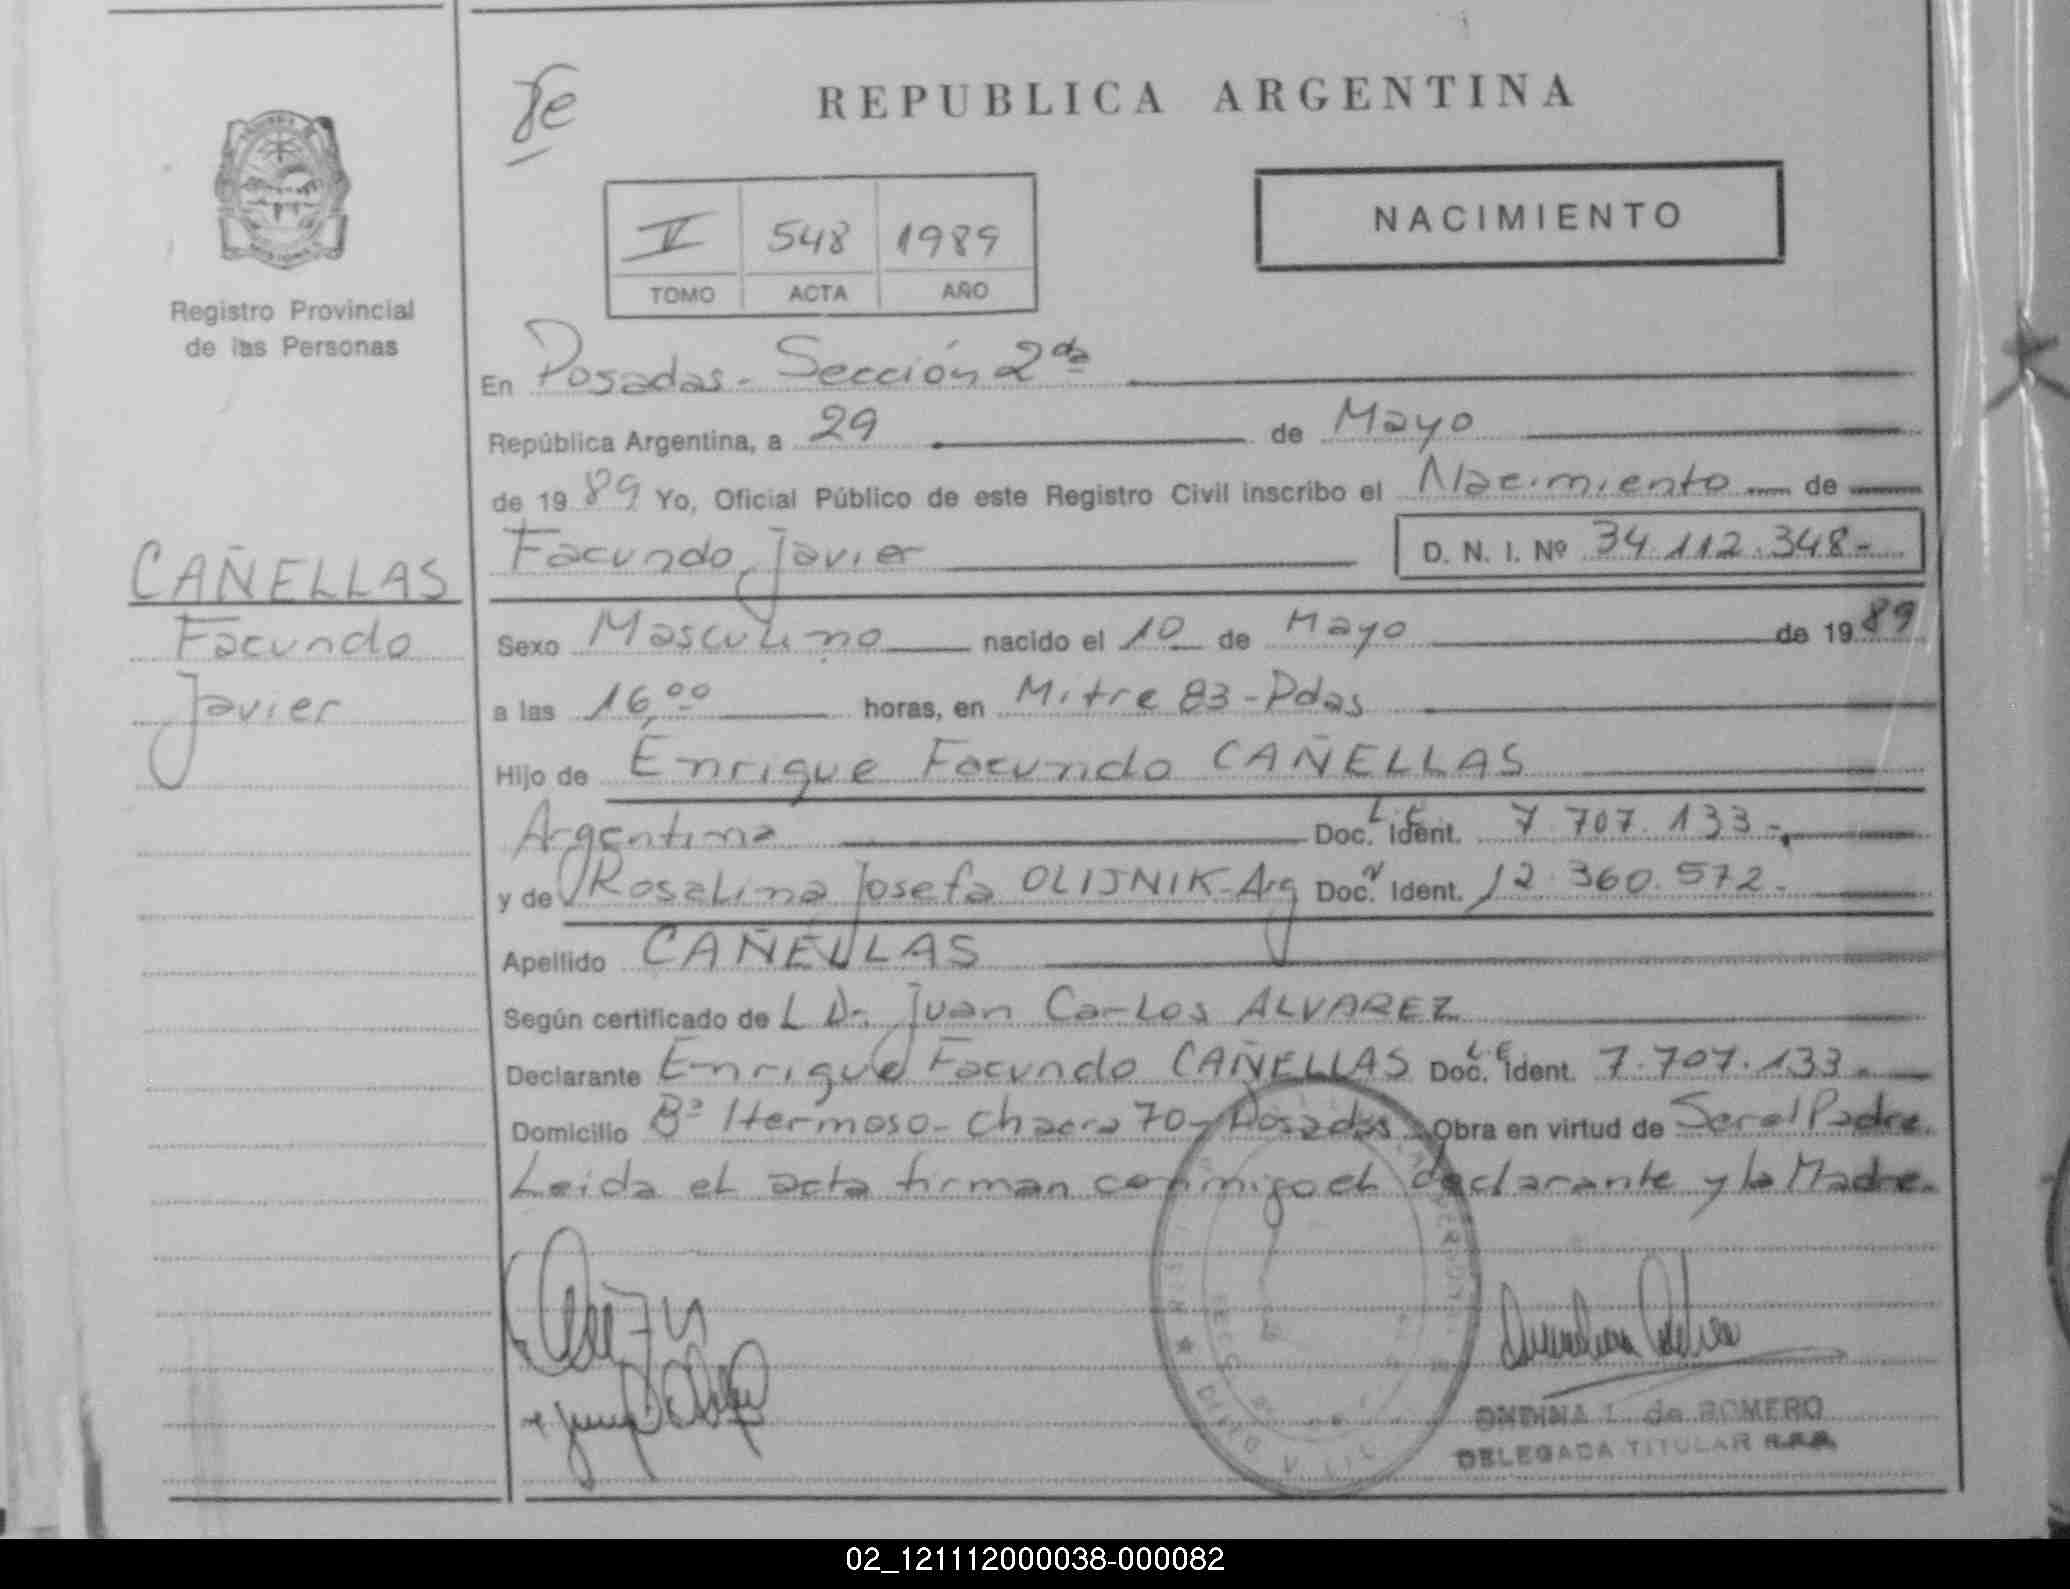 REPUBLICA ARGENTINA
V 548 1989
TOMO ACTA AÑO
NACIMIENTO
Registro Provincial
de las Personas
CAÑELLAS
Facundo
Javier
En Posadas - Sección 2da
República Argentina, a 29 de Mayo
de 1989 Yo, Oficial Público de este Registro Civil inscribo el Nacimiento de
Facundo Javier D. N. I. Nº 34.112.348-
Sexo Masculino nacido el 10 de Mayo de 1989
a las 16,00 horas, en Mitre 83 - Pdas
Hijo de Enrique Facundo CAÑELLAS
Argentina Doc. Ident. L.E. 7.707.133-
y de Rosalina Josefa OLIJNIK - Arg Doc. Ident. 12.360.572-
Apellido CAÑELLAS
Según certificado de L Dr. Juan Carlos ALVAREZ
Declarante Enrique Facundo CAÑELLAS Doc. Ident. L.E. 7.707.133-
Domicilio Bº Hermoso - Chacra 70 - Posadas Obra en virtud de Ser el Padre.
Leida el acta firman conmigo el declarante y la Madre.
ONDINA L. de ROMERO
DELEGADA TITULAR R.P.P.
02_121112000038-000082